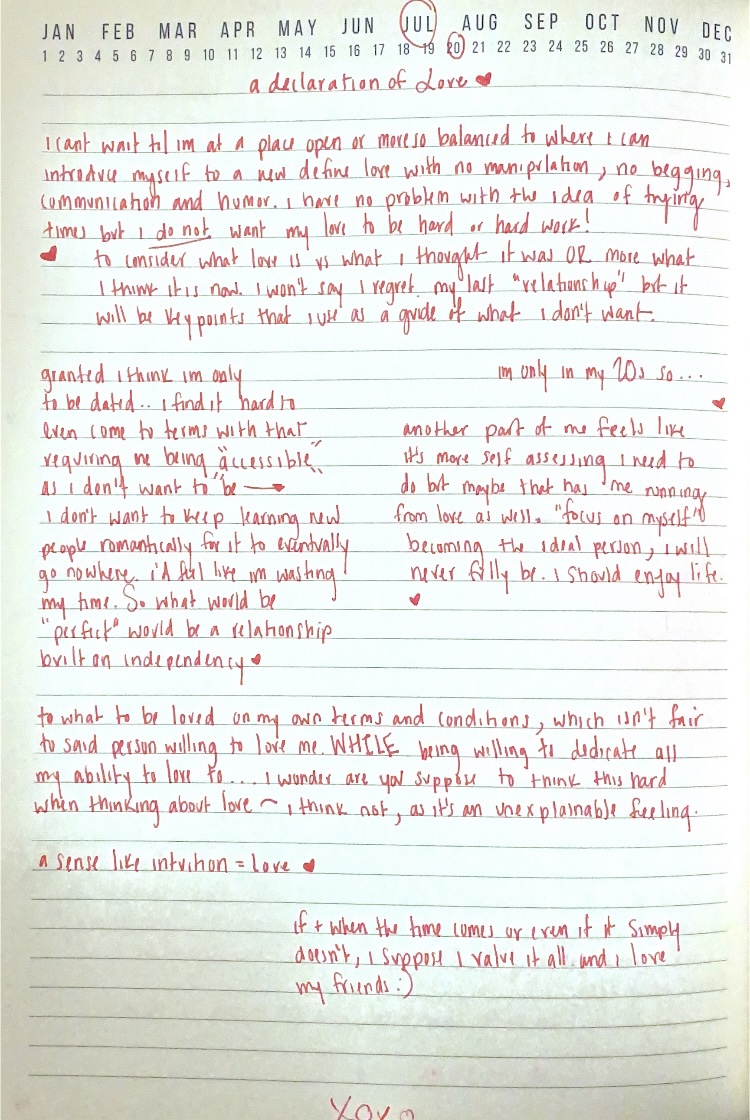 JAN FEB MAR APR MAY JUN JUL AUG SEP OCT NOV DEC
1 2 3 4 5 6 7 8 9 10 11 12 13 14 15 16 17 18 19 20 21 22 23 24 25 26 27 28 29 30 31
a declaration of Love ♥
I cant wait til im at a place open or more so balanced to where I can
introdvce myself to a new define love with no manipvlation, no begging,
communication and humor. I have no problem with the idea of trying
times but I do not want my love to be hard or hard work!
♥ to consider what love is vs what I thought it was OR more what
I think it is now. I won't say I regret my last "relationship" but it
will be key points that I use as a guide of what I don't want.
granted I think im only
to be dated.. I find it hard to
even come to terms with that
requiring me being "accessible"
as I don't want to "be →
I don't want to keep learning new
people romantically for it to eventually
go nowhere. i'd feel like im wasting
my time. So what would be
"perfect" would be a relationship
built on independency ♥
im only in my 20s so... ♥
another part of me feels like
it's more self assessing I need to
do but maybe that has me running
from love as well. "focus on myself"
becoming the ideal person, I will
never fully be. I should enjoy life.
♥
to what to be loved on my own terms and conditions, which isn't fair
to said person willing to love me. WHILE being willing to dedicate all
my ability to love to.... I wonder are you suppose to think this hard
when thinking about love ~ I think not, as it's an unexplainable feeling.
a sense like intuition = love ♥
if + when the time comes or even if it simply
doesn't, I suppose I value it all. and I love
my friends :)
xoxo